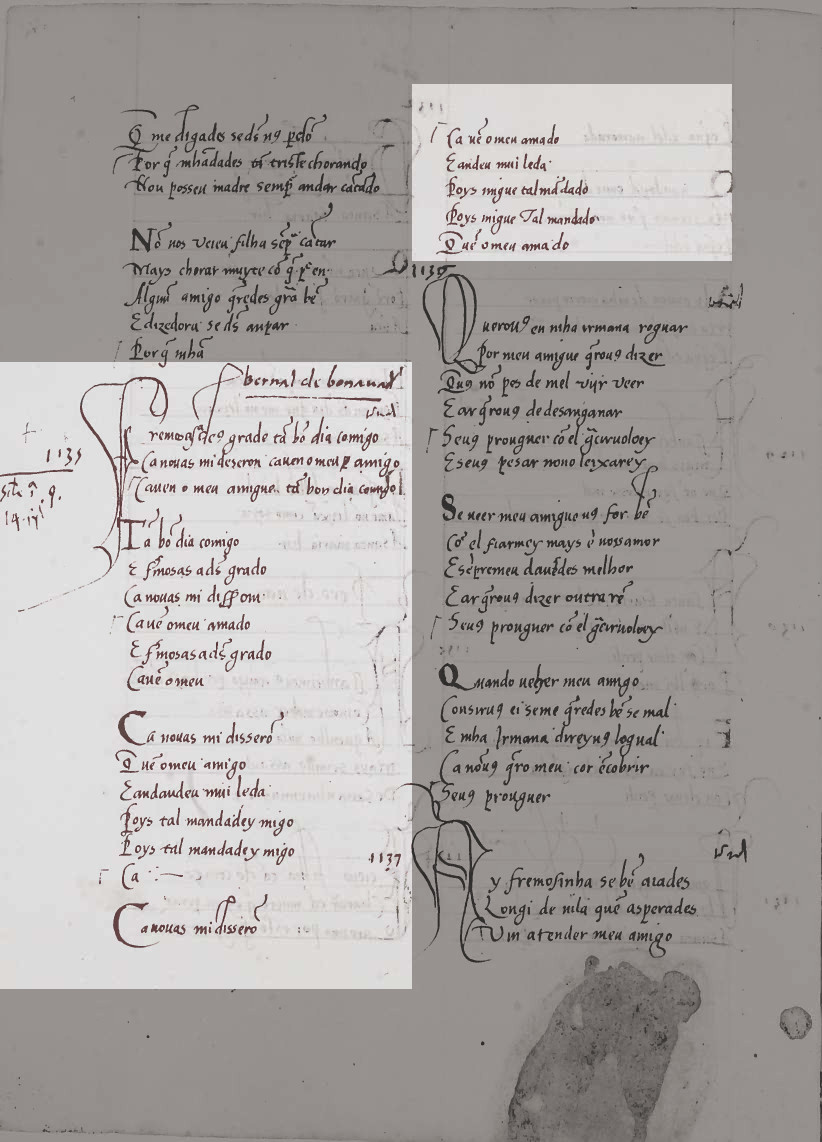 Q̃ me digades se ds̃ uꝯ ꝑdõ
Por q̃ mhãdades tã triste chorando
Nou posseu madre semp̃ andar cãtãdo
Nõ uos ueieu filha sẽp̃ cãtar
Mays chorar muyto cõ q̃ p̃ en
Algũ amigo q̃redes grã bẽ
Edizedora se ds̃ anpar
Por q̃ mhã
Bernal de bonaual
A
1135
Fremosas a ds̃ grade tã bõ dia comigo
Ca nouas mi deseron ca uen o meu amigo
Ca uen o meu amigu tã bon dia comigo
Tã bõ dia comigo
E fm̃osas a ds̃ grado
Ca nouas mi dissom
Ca uẽ o meu amado
E fm̃osas a ds̃ grado
Ca uẽ o meu
Ca nouas mi disserõ
Quẽ o meu amigo
E andandeu mui leda
Poys tal mandadey migo
Poys tal mandadey migo
Ca
Ca nouas mi disserõ
Ca uẽ o meu amado
E andeu mui leda
Poys migue tal mãdado
Poys migue Tal mandado
Quẽ o meu amado
1136
Querouꝯ eu mha irmana roguar
Por meu amigue q̃rouꝯ dizer
Que nõ pes de mel uijr ueer
E ar q̃rouꝯ de desanganar
Seuꝯ prouguer cõ el
E seuꝯ pesar nono leixarey
Se ueer meu amigue uꝯ for bẽ
Cõ el fiarmey mays ẽ uossamor
E sẽpre meu dauedes melhor
E ar q̃rouꝯ dizer outra rẽ
Seuꝯ prouguer cõ el
Quando ueher meu amigo
Consiruꝯ ei se me q̃redes bẽ se mal
E mha Irmana direyuꝯ logual
Ca nõ uꝯ q̃ro meu cor ẽcobrir
Seuꝯ prouguer
1137
Ay fremosinha se bẽ aiades
Longi de uila quẽ asperades
Uim atender meu amigo